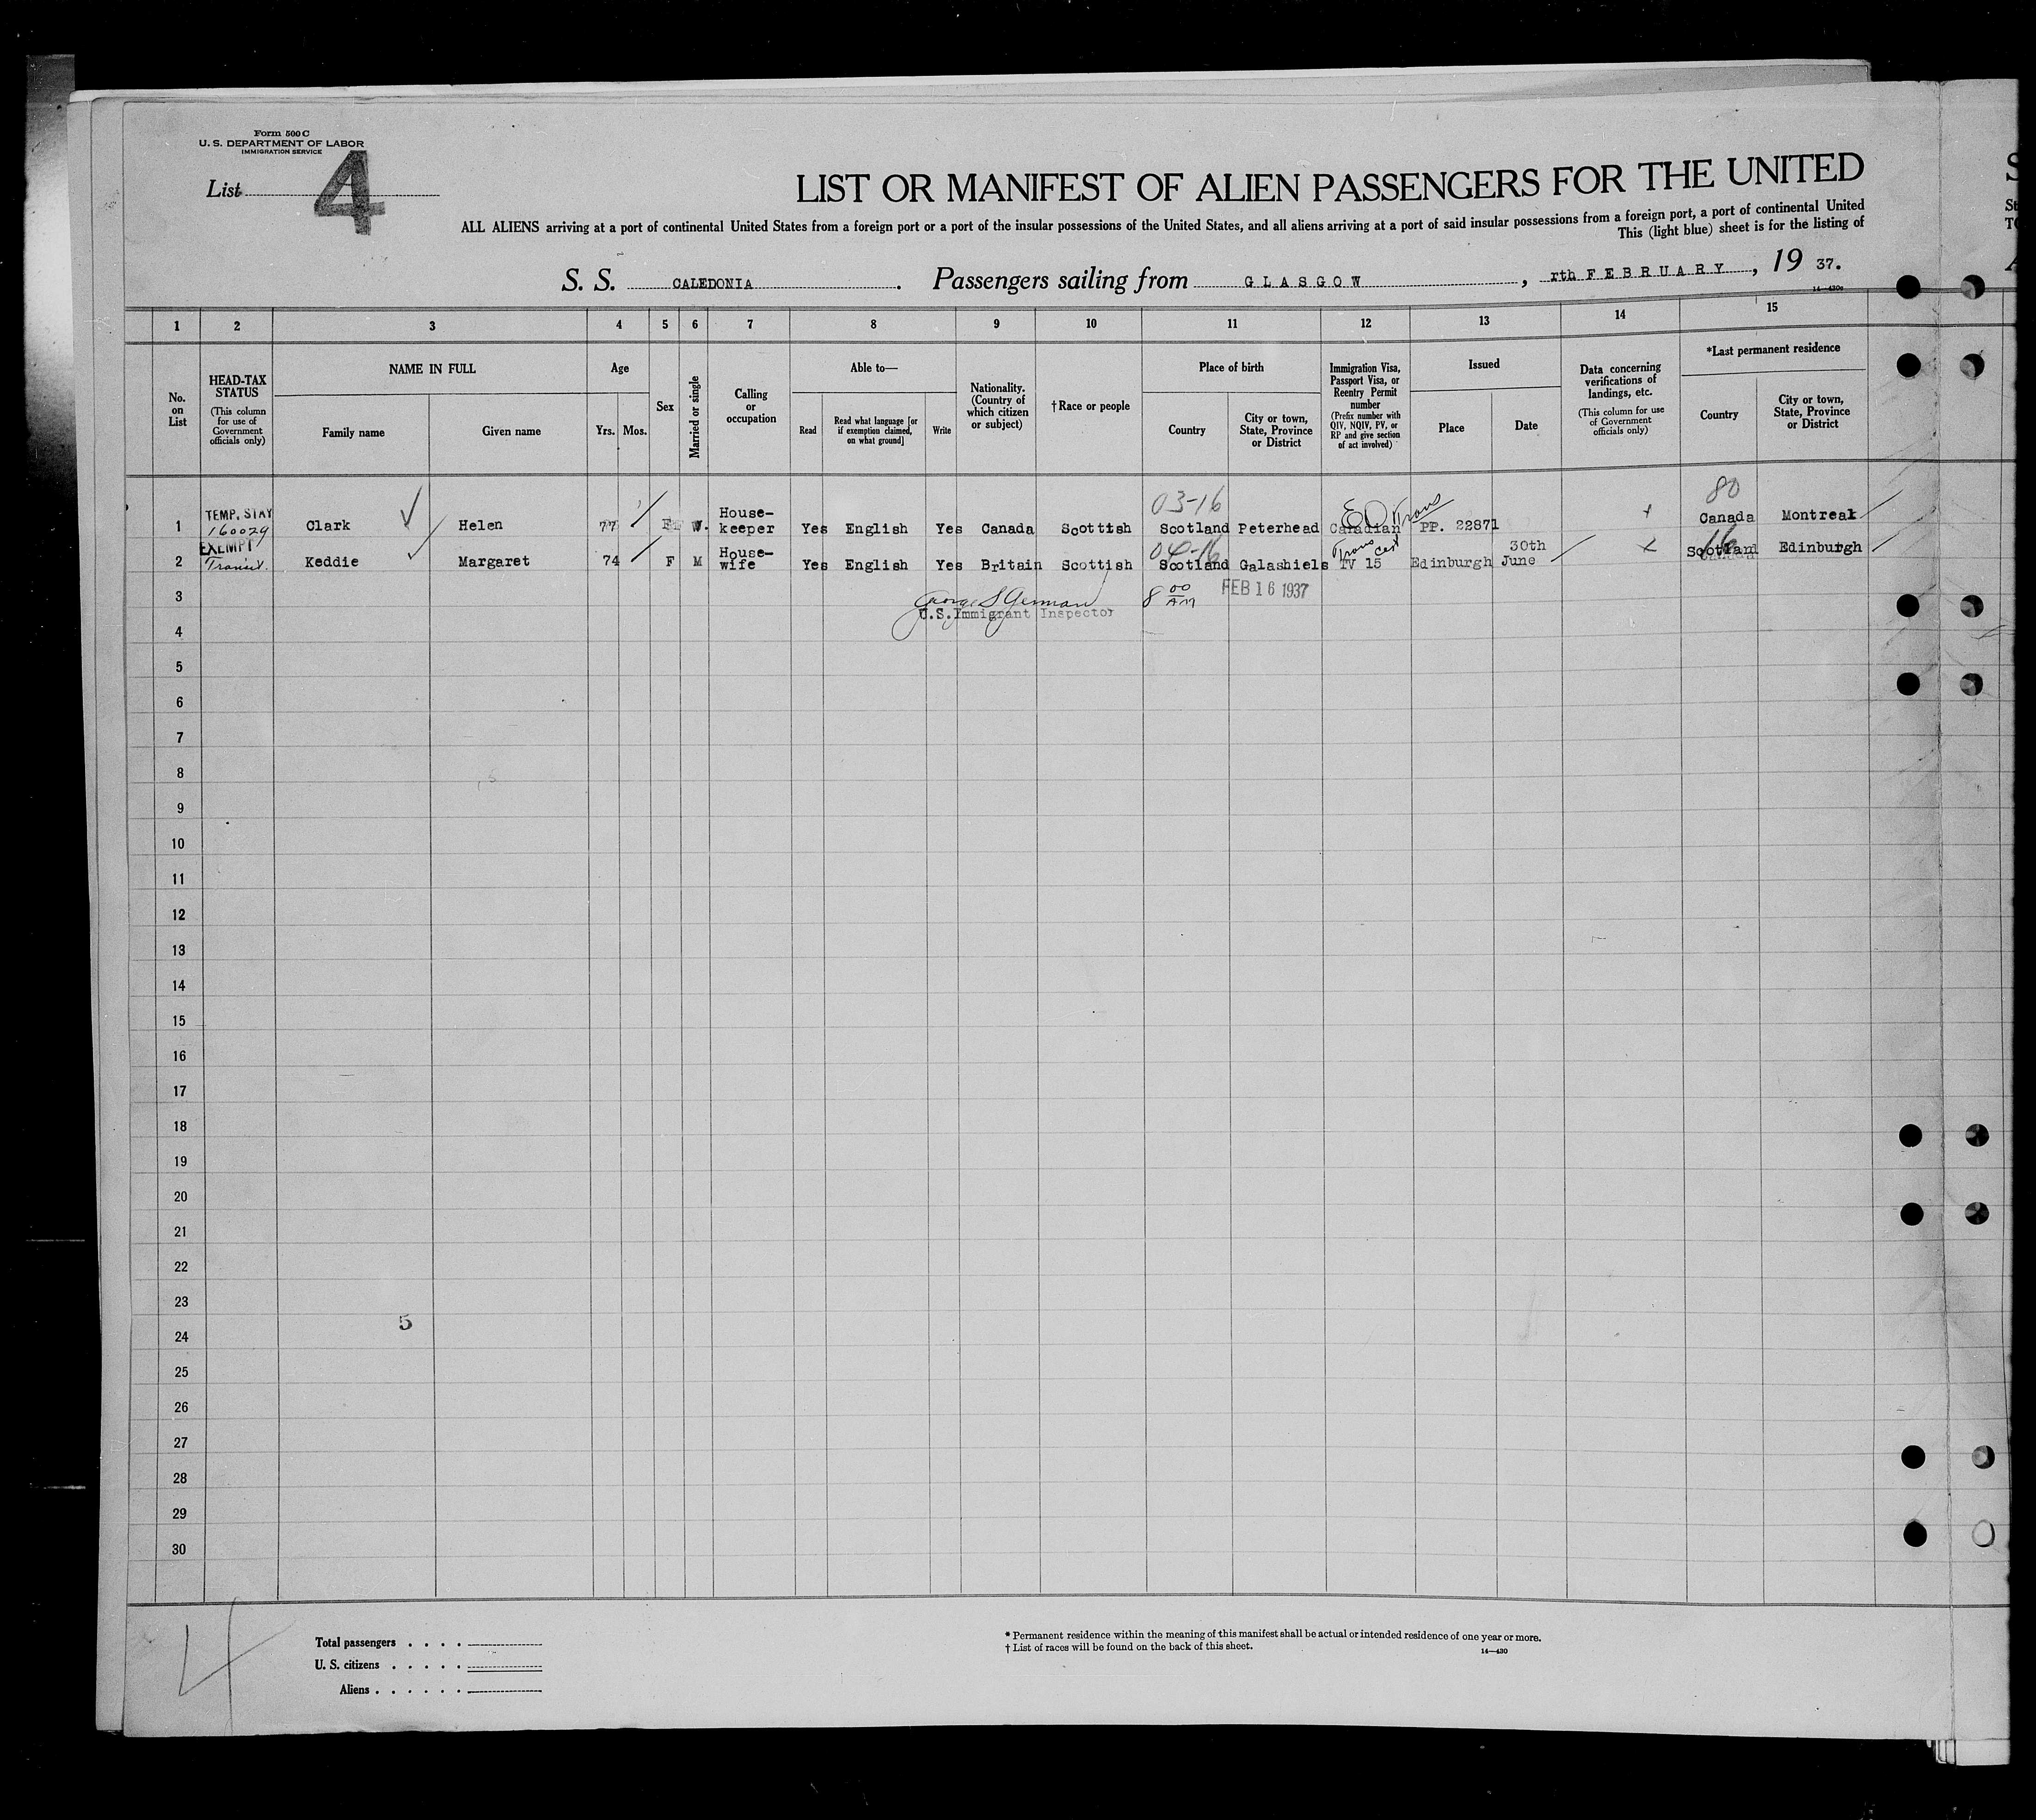 Form 500 C
U. S. DEPARTMENT OF LABOR
IMMIGRATION SERVICE
List 4
LIST OR MANIFEST OF ALIEN PASSENGERS FOR THE UNITED
ALL ALIENS arriving at a port of continental United States from a foreign port or a port of the insular possessions of the United States, and all aliens arriving at a port of said insular possessions from a foreign port, a port of continental United
This (light blue) sheet is for the listing of
S. S. CALEDONIA. Passengers sailing from GLASGOW, rth FEBRUARY, 19 37.
14—430c
1 2 3 4 5 6 7 8 9 10 11 12 13 14 15
No. on List
HEAD-TAX STATUS (This column for use of Government officials only)
NAME IN FULL
Family name
Given name
Age
Yrs. Mos.
Sex
Married or single
Calling or occupation
Able to—
Read
Read what language [or if exemption claimed, on what ground]
Write
Nationality. (Country of which citizen or subject)
† Race or people
Place of birth
Country
City or town, State, Province or District
Immigration Visa, Passport Visa, or Reentry Permit number (Prefix number with QIV, NQIV, PV, or RP and give section of act involved)
Issued
Place
Date
Data concerning verifications of landings, etc. (This column for use of Government officials only)
*Last permanent residence
Country
City or town, State, Province or District
03-16 80
1 TEMP. STAY 160029 Clark Helen 77 F W. House-keeper Yes English Yes Canada Scottish Scotland Peterhead Canadian PP. 22871 Canada Montreal
04-16 16
2 EXEMPT Transit. Keddie Margaret 74 F M House-wife Yes English Yes Britain Scottish Scotland Galashiels Trans Cert TV 15 Edinburgh 30th June Scotland Edinburgh
3 George S German 8 00 AM FEB 16 1937
U.S. Immigrant Inspector
4
5
6
7
8
9
10
11
12
13
14
15
16
17
18
19
20
21
22
23
5
24
25
26
27
28
29
30
4
Total passengers . . . .
U. S. citizens . . . . .
Aliens . . . . . .
* Permanent residence within the meaning of this manifest shall be actual or intended residence of one year or more.
† List of races will be found on the back of this sheet.
14—430